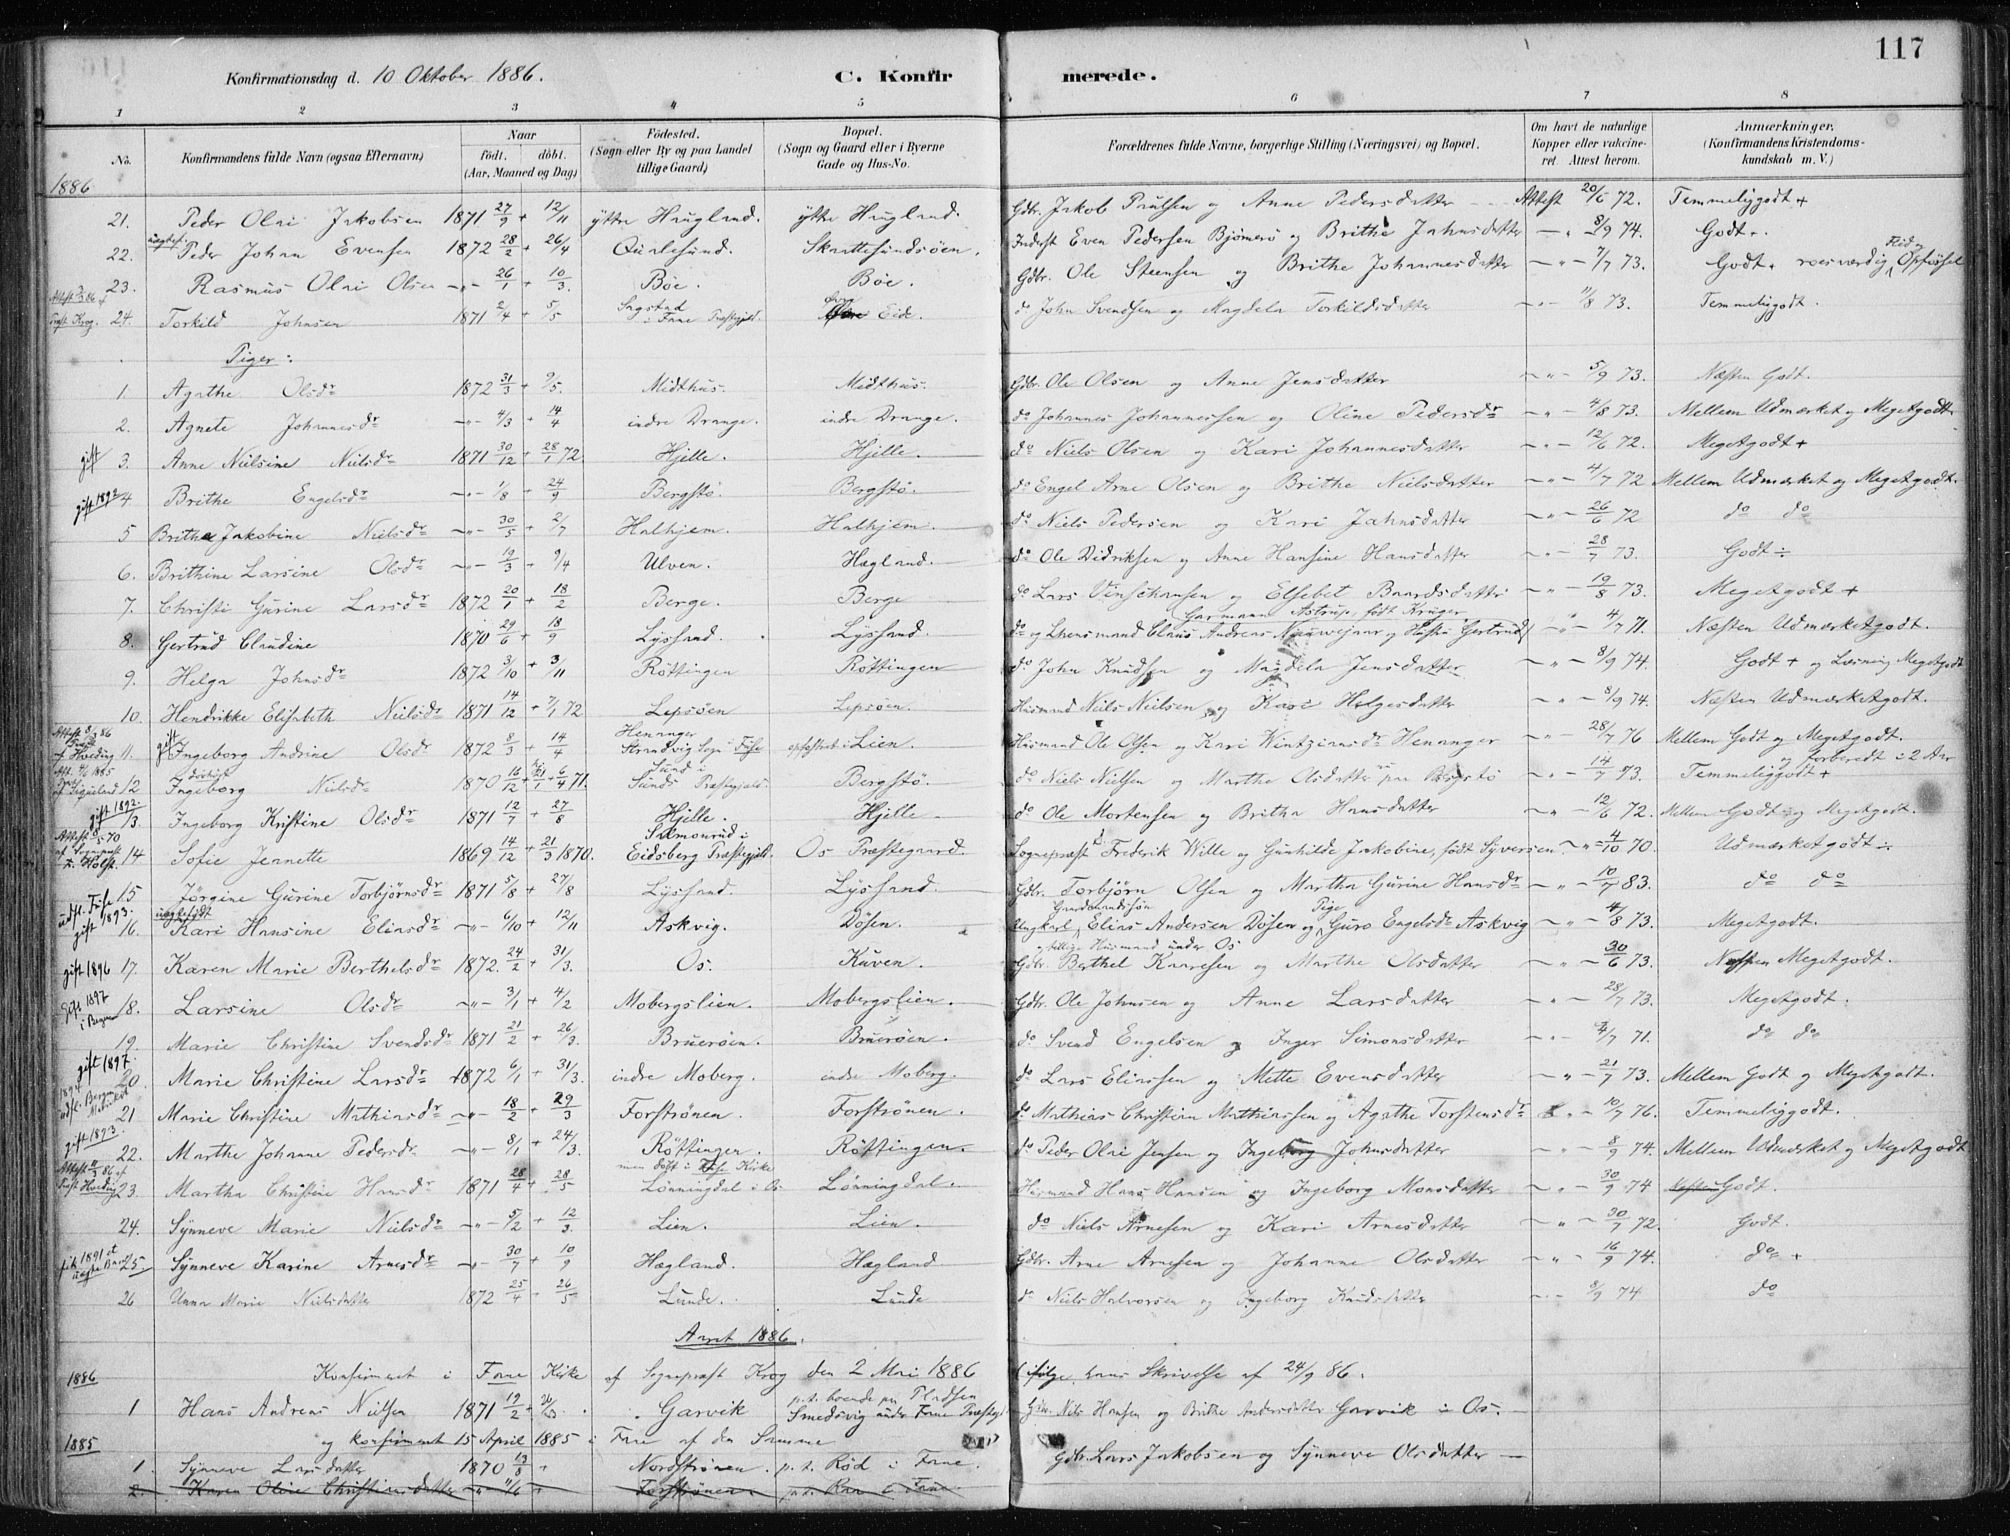 117
Konfirmationsdag d. 10 Oktober 1886. C. Konfirmerede.
1 2 3 4 5 6 7 8
No. Konfirmandens fulde Navn (ogsaa Efternavn) Naar født. døbt. (Aar, Maaned og Dag) Fødested. (Sogn eller By og paa Landet tillige Gaard) Bopæl. (Sogn og Gaard eller i Byerne Gade og Hus-No. Forældrenes fulde Navne, borgerlige Stilling (Næringsvei) og Bopæl. Om havt de naturlige Kopper eller vaccineret. Attest herom. Anmærkninger. (Konfirmandens Kristendomskundskab m. V.)
1886
21. Peder Olai Jakobsen 1871 27/9 + 12/11 ytre Haugland. ytre Haugland. Gdbr. Jakob Paulsen og Anne Pedersdatter Attest 20/6 72. Temmeliggodt +
22. uægtef. Peder Johan Evensen 1872 28/2 + 26/4 Qvalesund. Skaatesundsöen. Inderst Even Pedersen Bjömerö og Brithe Jahnsdatter – " – 8/9 74. Godt +.
23. Rasmus Olai Olsen – " – 26/1 + 10/3. Böe. Böe. Gdbr. Ole Steensen og Brithe Johannesdatter – " – 7/7 73. Godt + roesværdig Flid og Opförsel
Præst Krog. 24. Torkild Johnsen 1871 2/4 + 5/5 Sagstad i Fane Præstegjeld. Eide. do John Svendsen og Magdela Torkildsdatter – " – 11/8 73. Temmeliggodt.
Piger:
1. Agathe Olsdr 1872 31/3 + 9/5. Midthus. Midthus. Gdbr. Ole Olsen og Anne Jensdatter – " – 5/9 73. Næsten Godt.
2. Agnete Johannesdr – " – 4/3 + 14/4 indre Drange. indre Drange. do Johannes Johannessen og Oline Pedersdr – " – 4/8 73. Mellem Udmærket og Megetgodt
gift 3. Anne Nielsine Nielsdr 1871 30/12 + 28/1 72. Hjelle. Hjelle. do Niels Olsen og Kari Johannesdatter – " – 12/6 72. Megetgodt +
gift 1892 4 Brithe Engelsdr – " – 1/8 + 24/9 Bergstö. Bergstö. do Engel Arne Olsen og Brithe Nielsdatter – " – 4/7 72 Mellem Udmærket og Megetgodt.
5 Brithe Jakobine Nielsdr – " – 30/5 + 2/7 Halhjem. Halhjem. do Niels Pedersen og Kari Jahnsdatter – " – 26/6 72 do do
6. Brithine Larsine Olsdr – " – 19/3 + 9/4 Ulven. Hægland. do Ole Didriksen og Anne Hansine Hansdatter – " – 28/7 73. Godt ÷
7. Christi Gurine Larsdr 1872 20/1 + 18/2 Berge. Berge do Lars Vinschansen og Elsebet Baardsdatter – " – 19/8 73. Megetgodt +
8. Gertrud Claudine 1870 29/6 + 18/9 Lysfand. Lysfand. do og Lhensmand Claus Andreas Garmann Astrup, født Krüger Hustru Gertrud – " – 4/7 71. Næsten Udmærketgodt.
9. Helga Johnsdr 1872 3/10 + 3/11 Röttingen Röttingen do John Knudsen og Magdela Jensdatter – " – 8/9 74. Godt + og Læsning Megetgodt
10. Hendrikke Elisabeth Nielsdr 1871 14/12 + 7/1 72 Lepsöen Lepsöen. Husmand Niels Nielsen og Kari Helgesdatter – " – 8/9 74. Næsten Udmærketgodt.
Attest 86 af Hveding 11. gift Ingeborg Andrine Olsdr 1872 8/3 + 14/4 Henanger Strandvig Sogn i Fuse opfostret i Lien. Husmand Ole Olsen og Kari Wintziansdr Henanger – " – 28/7 76 Mellem Godt og Megetgodt.
1885 12 Ingeborg Nielsdr 1870 16/12 + 21/1 + 6/4 71. Sund i Sunds Præstegjeld. Bergstö. do Niels Nielsen og Marthe Olsdatter paa Bergstö – " – 14/7 73. Temmeliggodt + og forberedt i 2 Aar
gift 1892. 13. Ingeborg Kristine Olsdr 1871 12/7 + 27/8 Hjelle. Hjelle do Ole Mortensen og Britha Hansdatter – " – 12/6 72. Mellem Godt og Megetgodt.
Attest 70 af Sognepræst Holst. 14 Sofie Jennette 1869 14/12 + 21/3 1870. Salmonrud i Eidsberg Præstegjeld. Os Præstegaard. Sognepræst Frederik Wille og Gunhilde Jakobine, født Syversen – " – 4/10 70. Udmærketgodt ÷
udfl. Fuse 15 Jörgine Gurine Torbjørnsdr 1871 5/8 + 27/8 Lysfand. Lysfand. Gdbr. Torbjörn Olsen og Martha Gurine Hansdr – " – 10/7 83. do do
gift 1893. 16. uægtefødt Kari Hansine Eliasdr – " – 6/10 + 12/11 Askvig. Dösen. Ungkarl Gaardmandssön Elias Andersen Dösen og Pige Guro Engelsdr Askvig – " – 4/8 73. Megetgodt.
gift 1896 17. Karen Marie Berthelsdr 1872. 24/2 + 31/3. Os. Kuven. Gdbr. tillige Husmand under Os Berthel Knaresen og Marthe Olsdatter – " – 30/6 73. Næsten Megetgodt.
gift 1897 i Bergen 18. Larsine Olsdr – " – 3/1 + 4/2 Mobergslien. Mobergslien. Gdbr. Ole Johnsen og Anne Larsdatter " – 28/7 73. Megetgodt.
19. Marie Christine Svendsdr 1871 21/2 + 26/3. Bruerøen. Bruerøen. do Svend Engelsen og Inger Simonsdatter – " – 4/7 71. do do
gift 1897. 20. Marie Christine Larsdr 1872 6/1 + 31/3. indre Moberg. indre Moberg. do Lars Eliassen og Mette Evensdatter – " – 21/7 73. Mellem Godt og Megetgodt.
1894 udfl. Bergen 21 Marie Christine Mathiasdr – " – 18/2 + 29/3 Forströnen. Forströnen. do Mathias Christian Mathiassen og Agathe Torstensdr " – 10/7 76. Temmeliggodt.
gift 1893. 22. Marthe Johanne Pedersdr – " – 8/1 + 24/3. Röttingen. Röttingen. do Peder Olai Jensen og Ingeborg Johnsdatter " – 8/9 74. Mellem Udmærket og Megetgodt
Attest 86 af Præst Hveding 23. Martha Christine Hansdr 1871 28/4 + 28/5 men døbt i Fuse Kirke Lönningdal i Os Lönningdal. Husmand Hans Hansen og Ingeborg Monsdatter – " – 30/9 74 Godt.
24. Synneve Marie Nielsdr – " – 5/2 + 12/3. Lien. Lien. do Niels Arnesen og Kari Arnesdatter – " – 30/7 72. Godt.
fik 1891 et uægte Barn 25. Synneve Karine Arnesdr – " – 30/7 + 10/9 Hægland. Hægland. Gdbr. Arne Arnesen og Johanne Olsdatter – " – 16/9 74. do +
26 Anna Marie Nielsdatter 1872 25/4 + 26/5 Lunde. Lunde do Niels Halvorsen og Ingeborg Knudsdatter – " – 8/9 74 do
Aaret 1886.
1886 Konfirmeret i Fane Kirke af Sognepræst Krog den 2 Mai 1886 ifølge hans Skrivelse af 24/9 86.
1 Hans Andreas Nielsen 1871 19/2 + 26/3. Garvik p.t. boende paa Pladsen Smedsvig under Fane Præstegd Gdbr. Nils Hansen og Brithe Andersdatter Garvik i Os.
1885 og konfirmeret 15 April 1885 i Fane af den Samme
1. Synneve Larsdatter 1870 13/8 + Nordströnen. p.t. Rød i Fane. Gdbr. Lars Jakobsen og Synneve Olsdatter
2. Karen Oline Christiansdatter – " – 11/6 + Forströnen p.t. Raa i Fane.